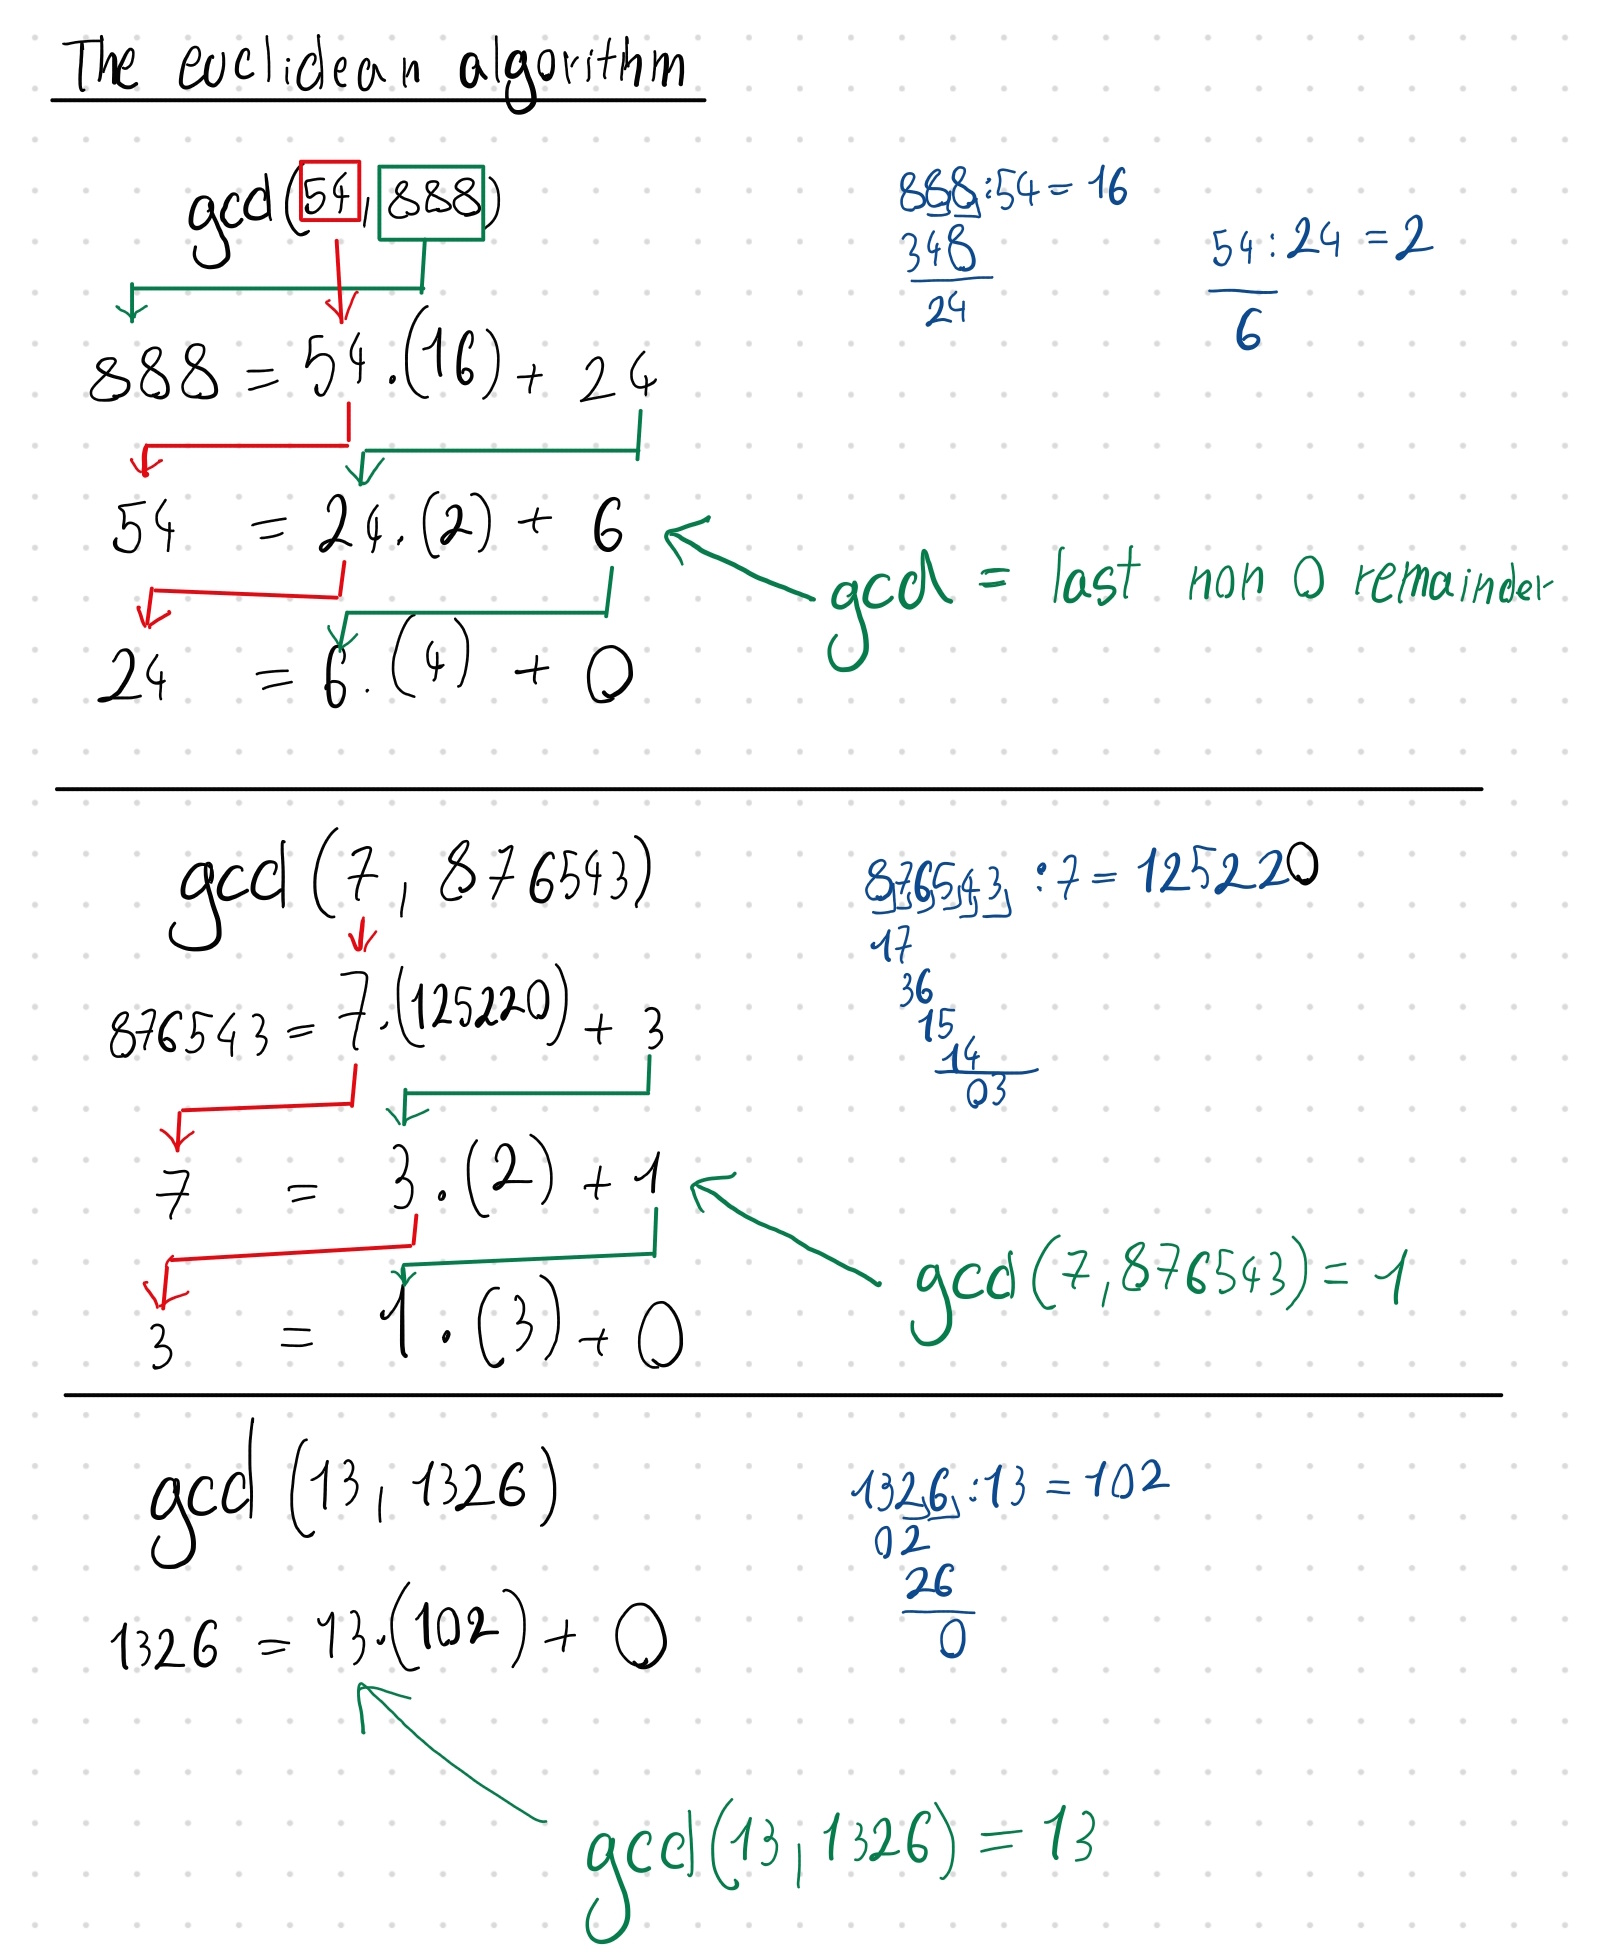 The euclidean algorithm
gcd(54, 888)
888 = 54.(16) + 24
54 = 24.(2) + 6
24 = 6.(4) + 0
888:54 = 16
348
24
54:24 = 2
6
gcd = last non 0 remainder
gcd(7, 876543)
876543 = 7.(125220) + 3
7 = 3.(2) + 1
3 = 1.(3) + 0
876543 :7 = 125220
17
36
15
14
03
gcd(7,876543) = 1
gcd(13, 1326)
1326 = 13.(102) + 0
1326 :13 = 102
02
26
0
gcd(13, 1326) = 13